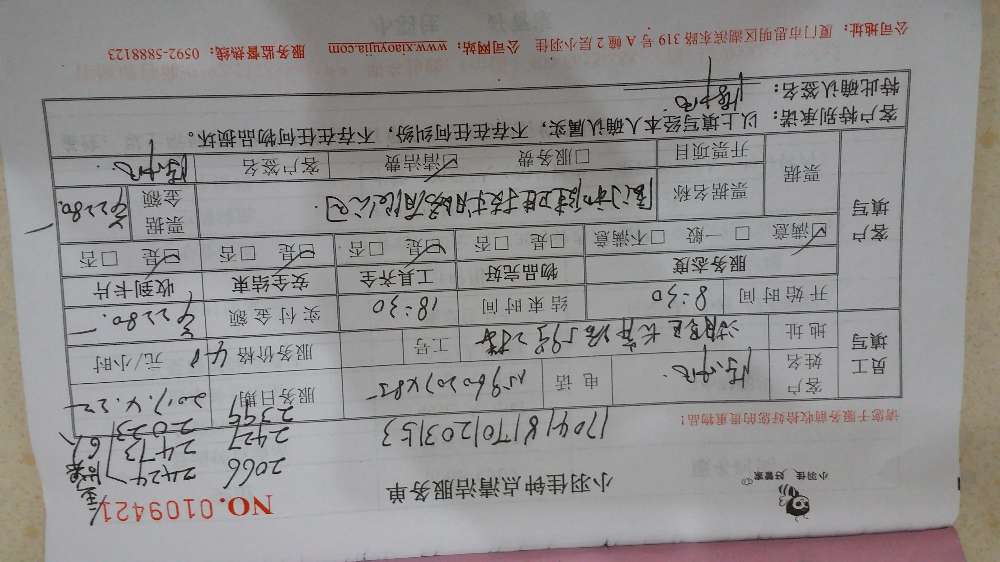 小羽佳 好管家
小羽佳钟点清洁服务单
NO.0109421
2066 2424
2427 2473 6人
2394 2033
1704181701203153
请您于服务前收检好您的贵重物品!
员工填写
客户姓名
电话
服务日期 2017.4.22
地址
工号
服务价格 40 元/小时
开始时间 8:30 结束时间 18:30 实付金额 ¥2280.
服务态度 物品完好 工具齐全 安全结束 收到卡片
☑满意 □一般 □不满意 □是 □否 ☑是 □否 ☑是 □否 ☑是 □否
客户填写
票据 票据名称 票据金额 ¥2280.
开票项目 □服务费 ☑清洁费 客户签名
客户特别承诺: 以上填写经本人确认属实,不存在任何纠纷,不存在任何物品损坏。
特此确认签名:
公司地址: 厦门市思明区湖滨东路 319 号 A 幢 2 层小羽佳 公司网站: www.xiaoyujia.com 服务监督热线: 0592-5888123